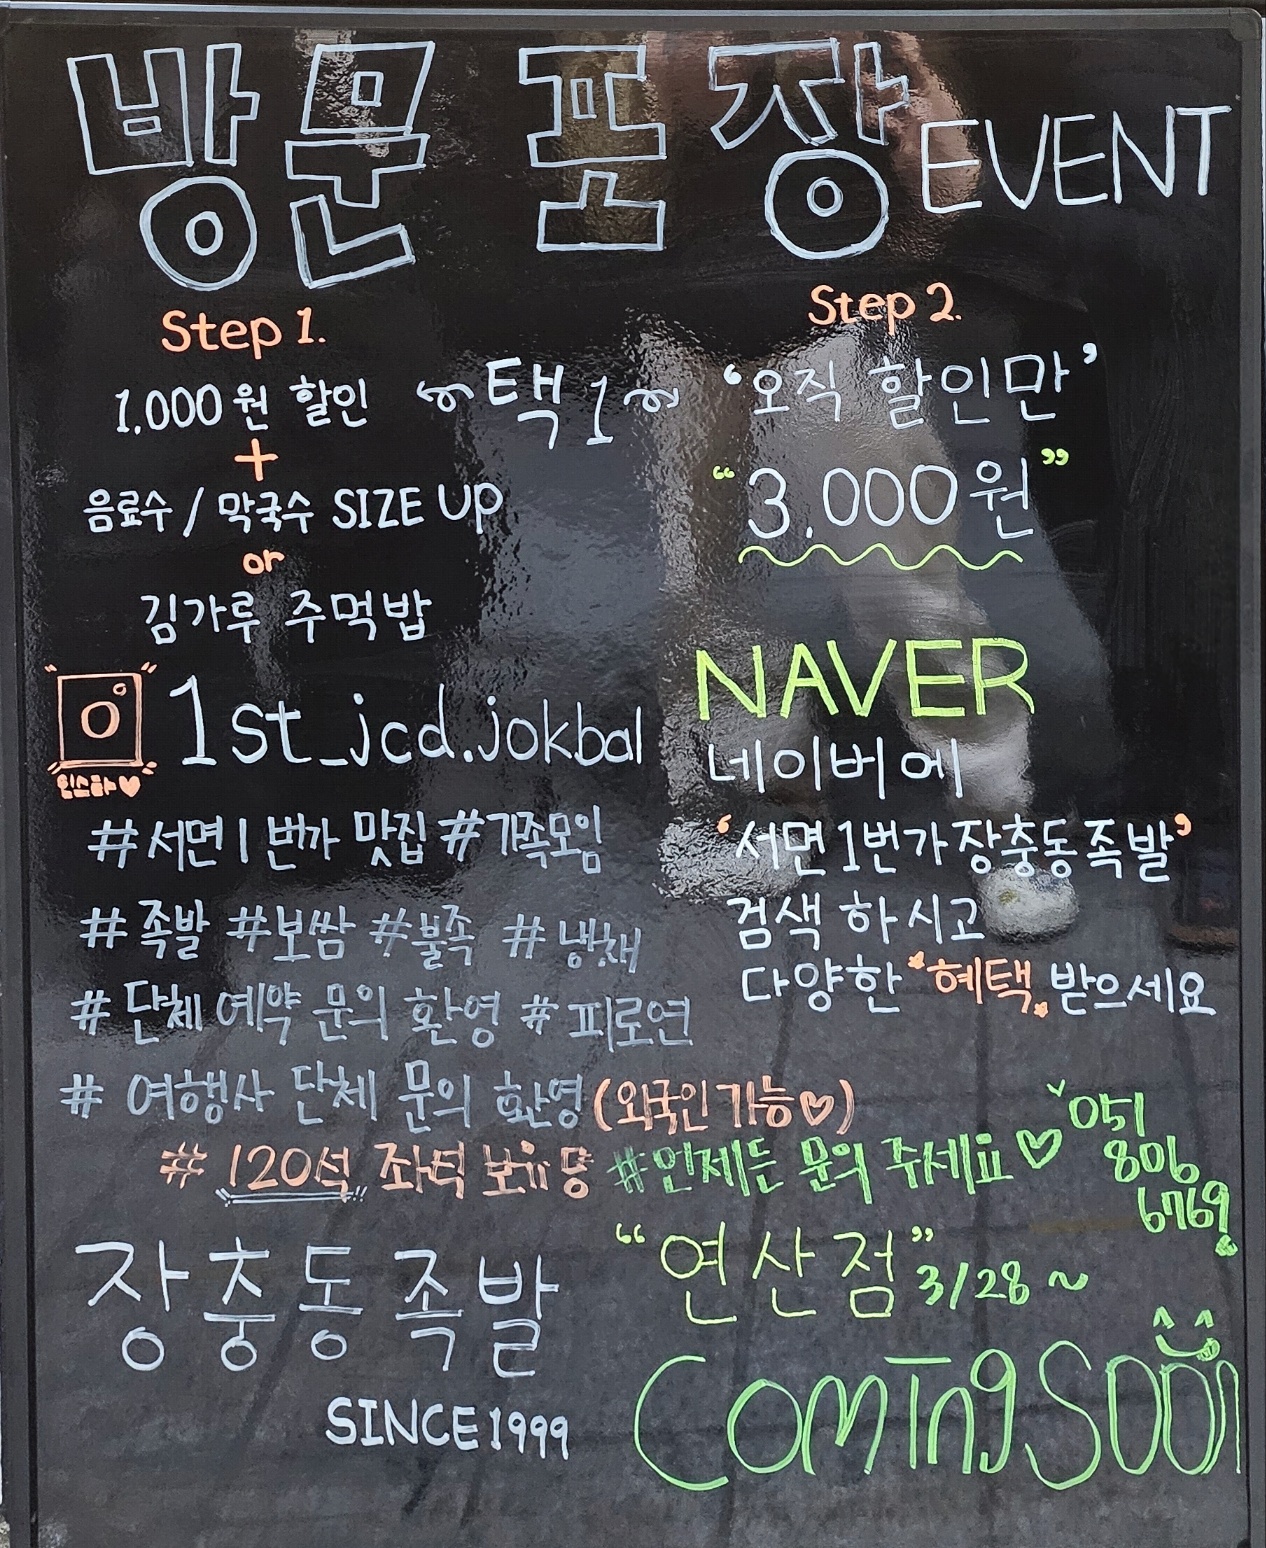 방문 포장 EVENT
Step 1.
1.000원 할인
+
음료수 / 막국수 SIZE UP
or
김가루 주먹밥
택1
Step 2.
'오직 할인만'
"3.000원"
인스타♥
1st_jcd.jokbal
#서면1번가 맛집 #가족모임
#족발 #보쌈 #불족 #냉채
#단체 예약 문의 환영 #피로연
#여행사 단체 문의 환영 (외국인 가능♡)
#120석 좌석 보유 중 #언제든 문의 주세요♡
051
806
6769
NAVER
네이버에
'서면1번가장충동족발'
검색 하시고
다양한 "혜택" 받으세요
장충동족발
SINCE 1999
"연산점" 3/28 ~
Coming Soon